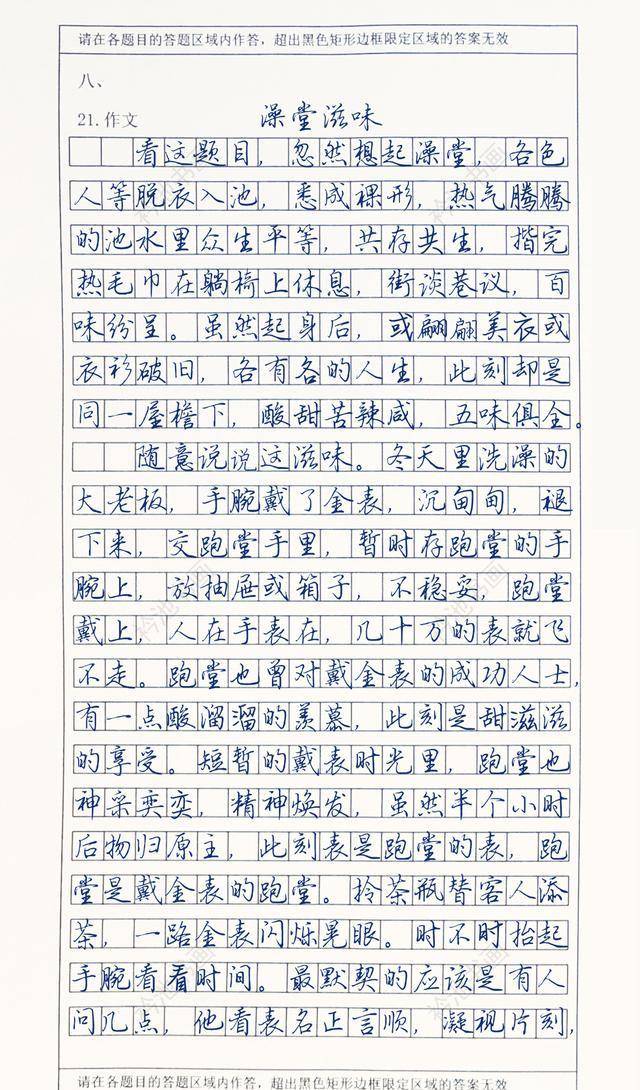 请在各题目的答题区域内作答，超出黑色矩形边框限定区域的答案无效
八、
21.作文 澡堂滋味
看这题目，忽然想起澡堂，各色
人等脱衣入池，悉成裸形，热气腾腾
的池水里众生平等，共存共生，揩完
热毛巾在躺椅上休息，街谈巷议，百
味纷呈。虽然起身后，或翩翩美衣或
衣衫破旧，各有各的人生，此刻却是
同一屋檐下，酸甜苦辣咸，五味俱全。
随意说说这滋味。冬天里洗澡的
大老板，手腕戴了金表，沉甸甸，褪
下来，交跑堂手里，暂时存跑堂的手
腕上，放抽屉或箱子，不稳妥，跑堂
戴上，人在手表在，几十万的表就飞
不走。跑堂也曾对戴金表的成功人士，
有一点酸溜溜的羡慕，此刻是甜滋滋
的享受。短暂的戴表时光里，跑堂也
神采奕奕，精神焕发，虽然半个小时
后物归原主，此刻表是跑堂的表，跑
堂是戴金表的跑堂。拎茶瓶替客人添
茶，一路金表闪烁晃眼。时不时抬起
手腕看看时间。最默契的应该是有人
问几点，他看表名正言顺，凝视片刻，
请在各题目的答题区域内作答，超出黑色矩形边框限定区域的答案无效